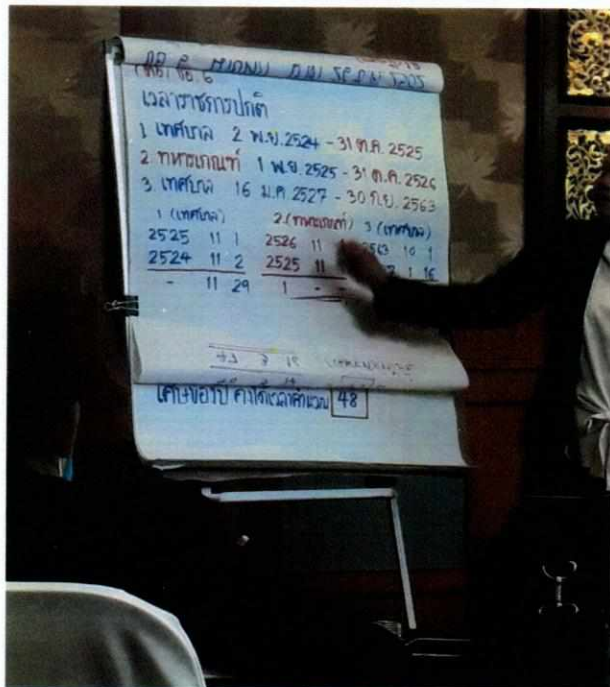 เวลาราชการปกติ
1. เทศบาล 2 พ.ย. 2524 - 31 ต.ค. 2525
2. ทหารเกณฑ์ 1 พ.ย. 2525 - 31 ต.ค. 2526
3. เทศบาล 16 ม.ค 2527 - 30 ก.ย. 2563
1 (เทศบาล) 2.(ทหารเกณฑ์) 3 (เทศบาล)
2525 11 1 2526 11 2563 10 1
2524 11 2 2525 11 1 16
- 11 29 1 - -
เศษของปี คงได้เวลาคำนวณ 48